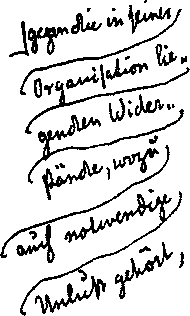 gegen die in seiner
Organisation lie„
genden Wider„
stände, wozu
auch notwendige
Unlust gehört,